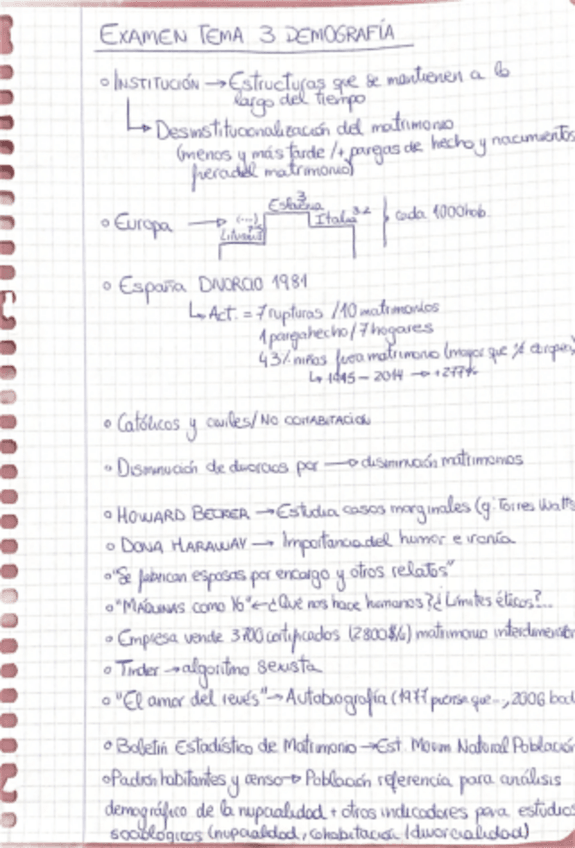 EXAMEN TEMA 3 DEMOGRAFÍA
○ INSTITUCIÓN → Estructuras que se mantienen a lo
largo del tiempo
↳ Desinstitucionalización del matrimonio
(menos y más tarde /+ parejas de hecho y nacimientos
fuera del matrimonio)
España 3
○ Europa → (...) Italia 3'2 cada 1000 hab.
○ España DIVORCIO 1981
↳ Act. = 7 rupturas /10 matrimonios
1 pareja hecho / 7 hogares
43% niños fuera matrimonio (mayor que % europeo)
○ Católicos y civiles/ NO COHABITACIÓN
○ Disminución de divorcios por → disminución matrimonios
○ HOWARD BECKER → Estudia casos marginales (Torres Watts
○ DONA HARAWAY → Importancia del humor e ironía
○ "Se fabrican esposas por encargo y otros relatos"
○ "MÁQUINAS como Yo" ← ¿Qué nos hace humanos? ¿Límites éticos?...
○ Empresa vende 3700 certificados (2800$/6) matrimonio
○ Tinder → algoritmo sexista
○ "El amor del revés" → Autobiografía (1977 piensa que..., 2006
○ Boletín Estadístico de Matrimonio → Est. Movim Natural Población
○ Padrón habitantes y censo → Población referencia para análisis
demográfico de la nupcialidad + otros indicadores para estudios
sociológicos (nupcialidad, cohabitación /divorcialidad)